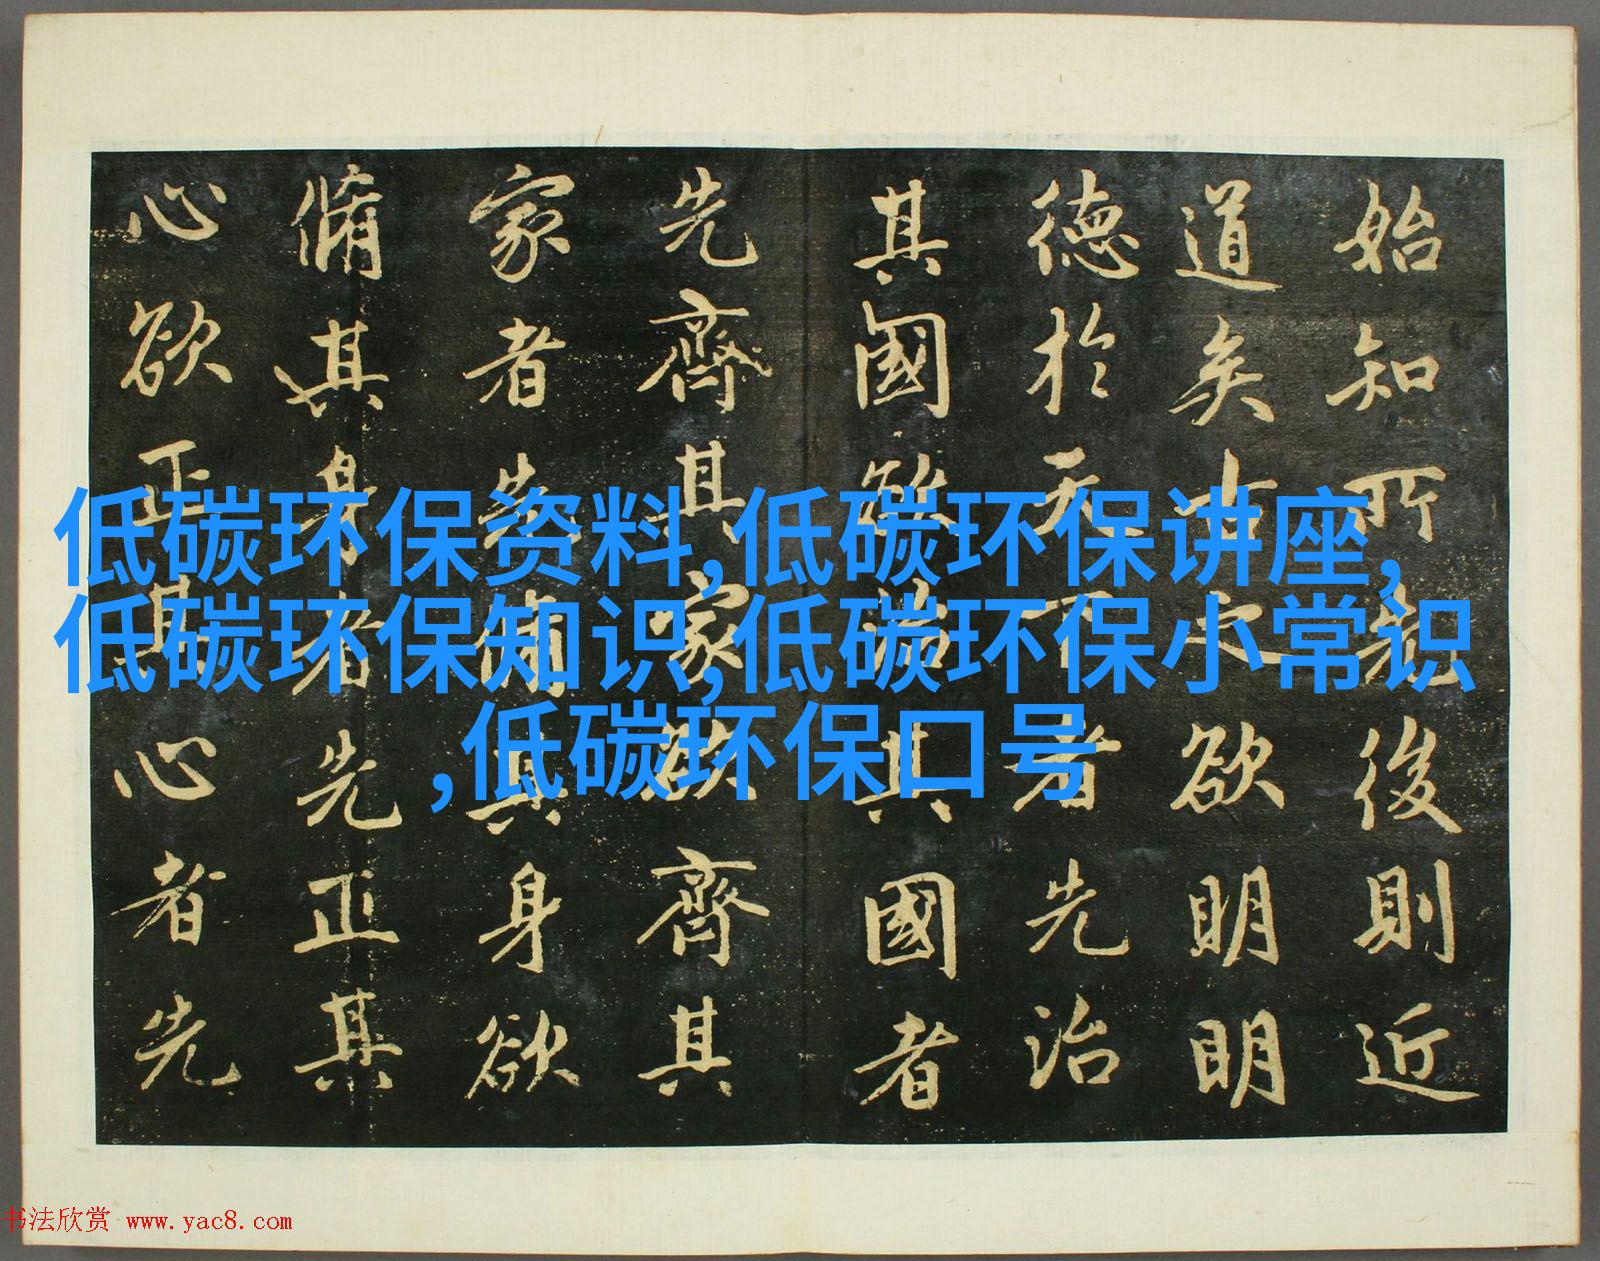 始知所先後則近
道矣古之欲明明
德於天下者先治
其國欲治其國者
先齊其家欲齊其
家者先脩其身欲
脩其身者先正其
心欲正其心者先
低碳环保资料,低碳环保讲座,
低碳环保知识,低碳环保小常识
,低碳环保口号
书法欣赏 www.yac8.com